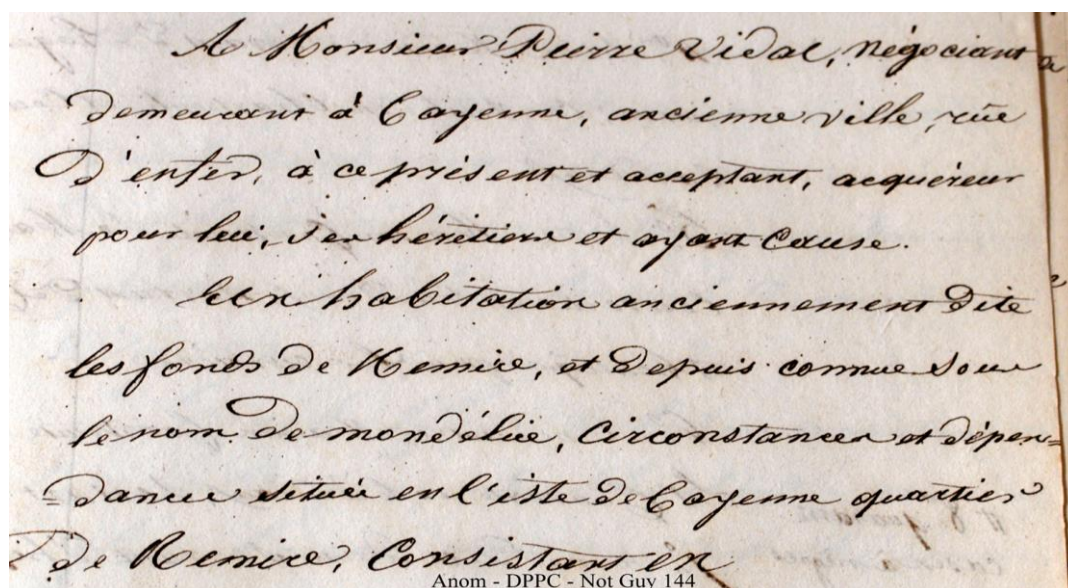 A Monsieur Pierre Vidal, négociant
demeurant à Cayenne, ancienne ville, rüe
d'enfer, à ce présent et acceptant, acquéreur
pour lui, ses héritiers et ayant cause.
habitation anciennement dite
les fonds de Remire, et depuis connue sous
le nom de mondélice, circonstances et dépen=
=dances située en l'isle de Cayenne quartier
de Remire, Consistant en
Anom - DPPC - Not Guy 144